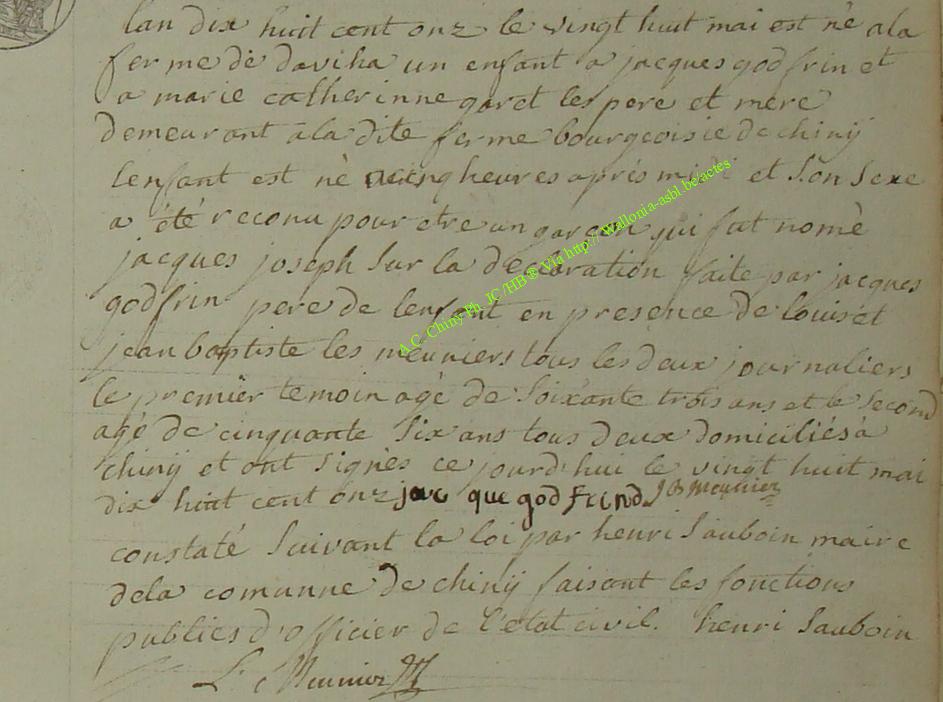 lan dix huit cent onz le vingt huit mai est nè ala
ferme de daviha un enfant a jacques godfrin et
a marie catherinne garet les pere et mere
demeurant ala dite ferme bourgeoisie de chinÿ
lenfant est nè a cinq heures aprés midi et son sexe
a été reconu pour etre un garcon qui fut nomè
jacques joseph sur la declaration faite par jacques
godfrin pere de lenfant en presence de louis et
jean baptiste les meuniers tous les deux journaliers
le premier temoin agè de soixante trois ans et le second
agè de cinquante six ans tous deux domiciliés a
chinÿ et ont signès ce jourd'hui le vingt huit mai
dix huit cent onz jac que godfrind JB meunier
constaté suivant la loi par henri sauboin maire
dela comunne de chinÿ faisant les fonctions
publics d'officier de l'etat civil. henri sauboin
L Meunier
A.C. Chiny Ph. JC/HB ® Via http://wallonia-asbl.be/actes